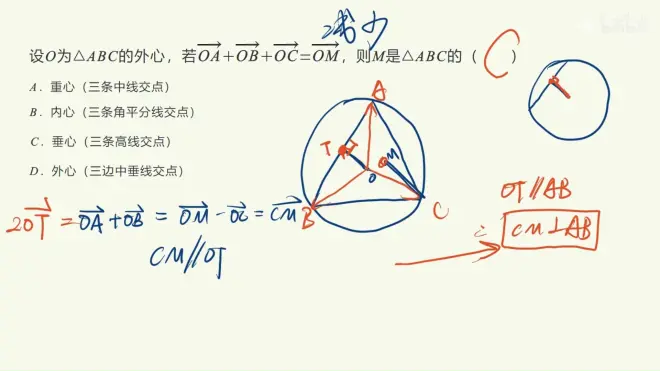 减少
设O为△ABC的外心，若OA+OB+OC=OM，则M是△ABC的（ C ）
A．重心（三条中线交点）
B．内心（三条角平分线交点）
C．垂心（三条高线交点）
D．外心（三边中垂线交点）
A
T
M
O
B
C
2OT = OA+OB = OM-OC = CM
CM//OT
OT//AB
∴ CM⊥AB